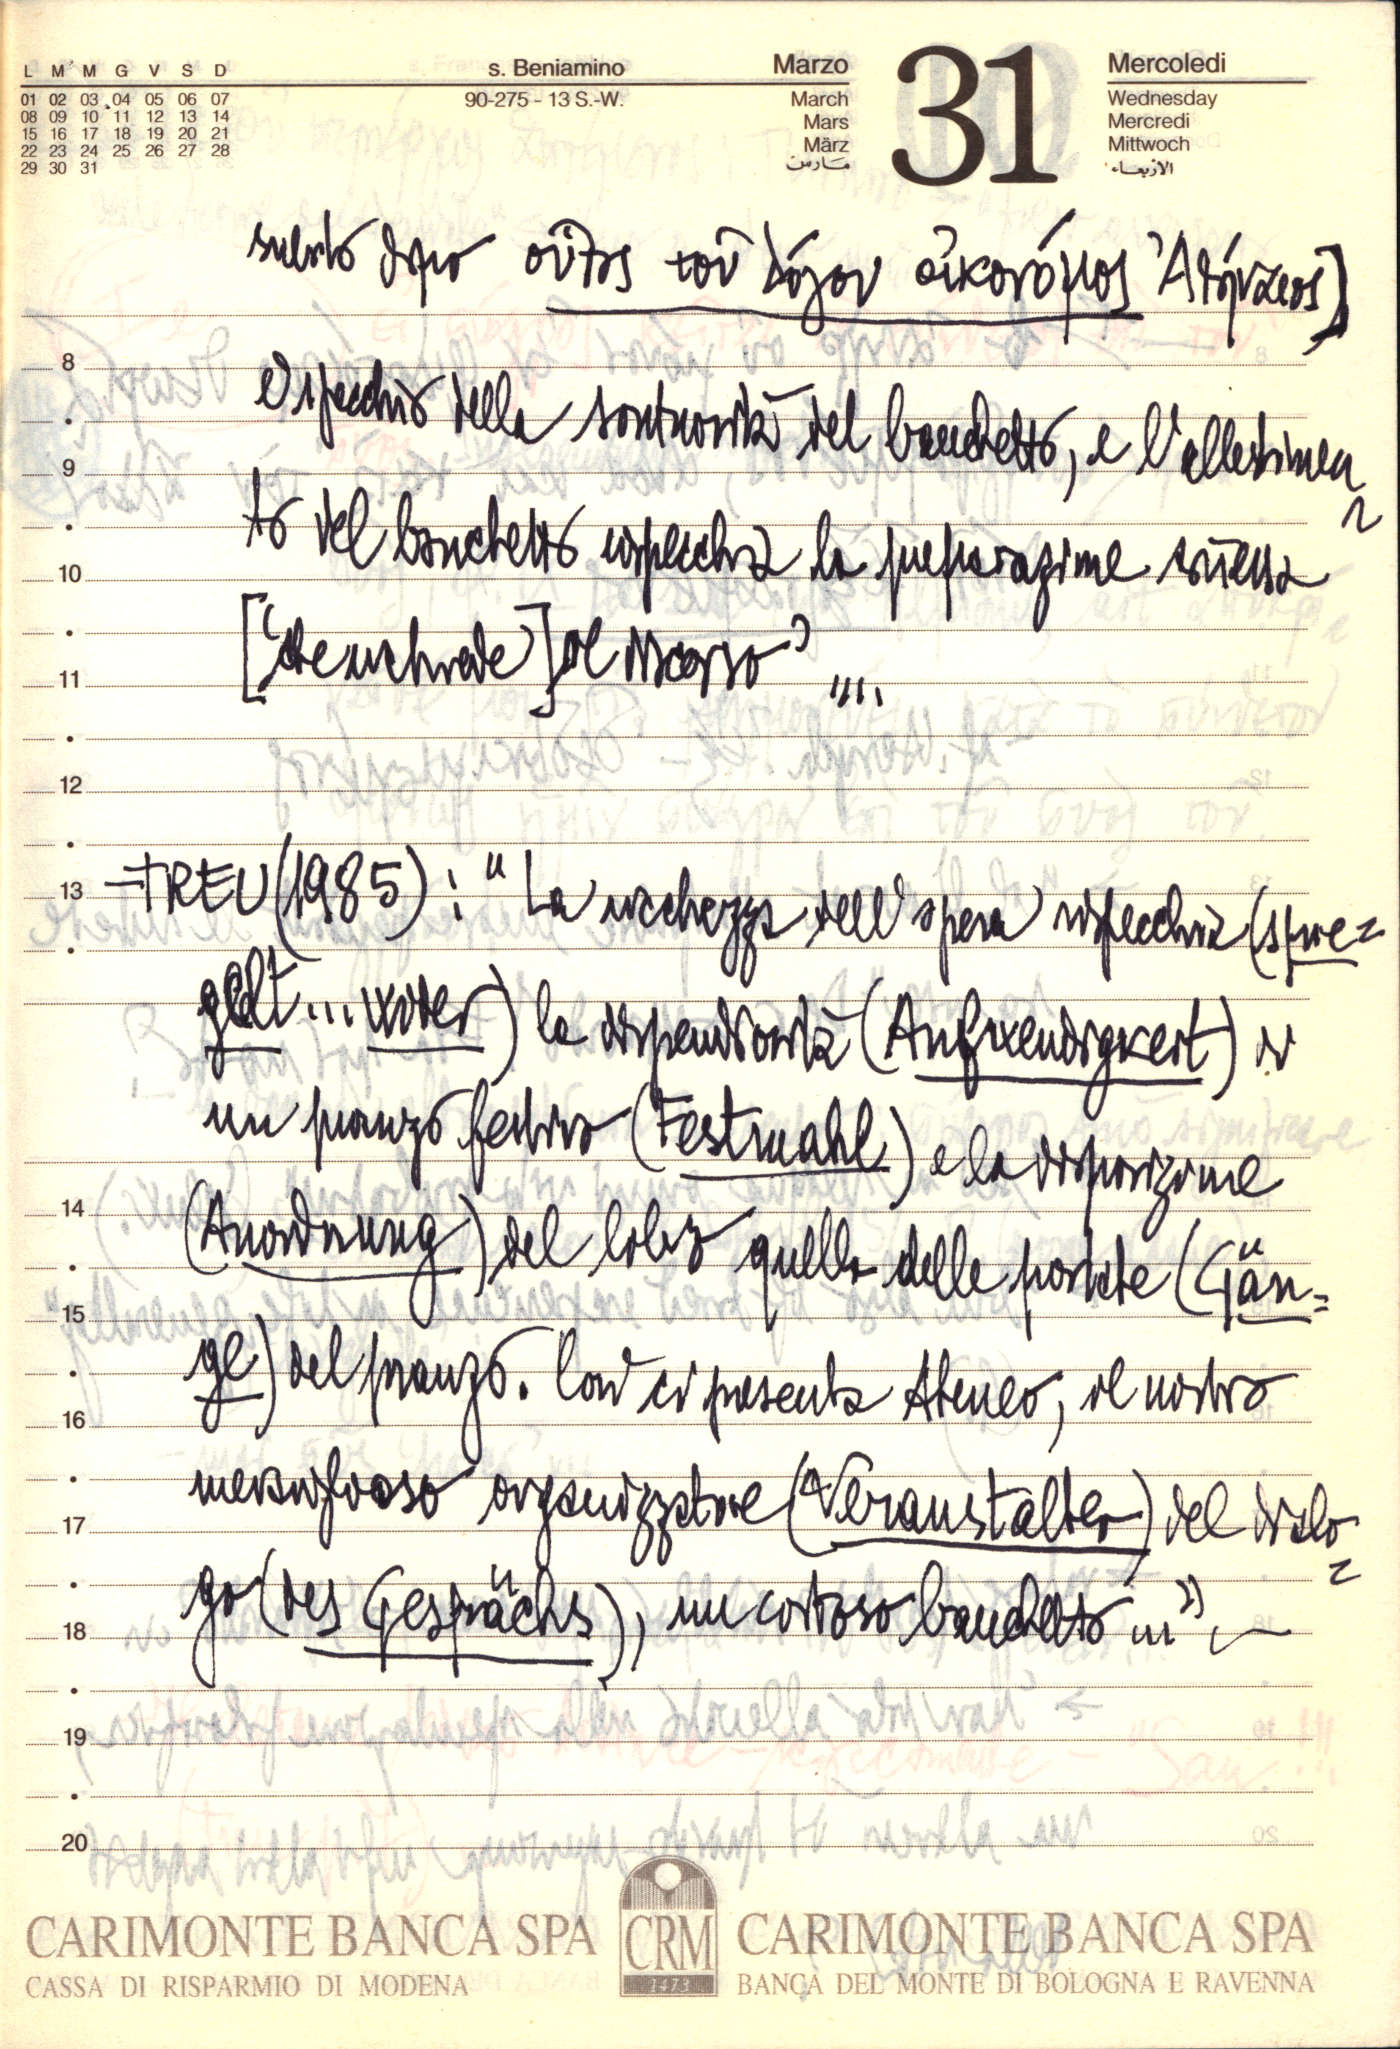 L M M G V S D
01 02 03 04 05 06 07
08 09 10 11 12 13 14
15 16 17 18 19 20 21
22 23 24 25 26 27 28
29 30 31
s. Beniamino
90-275 - 13 S.-W.
Marzo
March
Mars
März
مارس
31
Mercoledì
Wednesday
Mercredi
Mittwoch
الاربعاء
οὗτος τοῦ λόγου οἰκονόμος Ἀθήναιος]
è specchio della sontuosità del banchetto, e l'allestimen
8
9
to del banchetto rispecchia la preparazione stessa
10
] del discorso" ....
11
12
13
- TREU (1985): "La ricchezza dell'opera rispecchia (spie=
gelt ... wider) la dispendiosità (Aufwendigkeit) di
un pranzo festivo (Festmahl) e la disposizione
14
(Anordnung) del quella delle portate (Gän=
15
ge) del pranzo. Così ci presenta Ateneo, il nostro
16
meraviglioso organizzatore (Veranstalter) del dialo
17
go (des Gesprächs), un banchetto ..."
18
19
20
CARIMONTE BANCA SPA
CASSA DI RISPARMIO DI MODENA
CRM
1473
CARIMONTE BANCA SPA
BANCA DEL MONTE DI BOLOGNA E RAVENNA